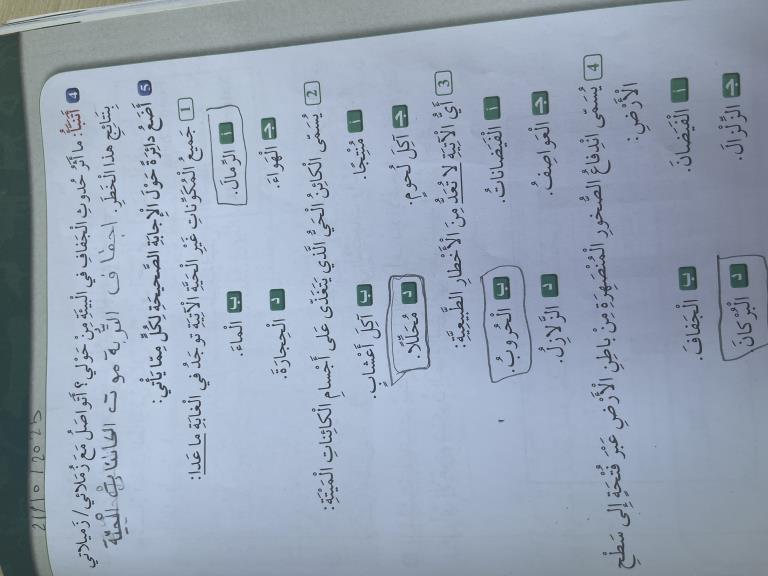 21/10/2025
4 أَتَنَبَّأُ: ما أَثَرُ حُدوثِ الْجَفافِ في الْبيئَةِ مِنْ حَوْلي؟ أَتَواصَلُ مَعَ زُمَلائي/ زَميلاتي
بِنَتائِجِ هذا الْخَطَرِ. اجفاف التربة موت الكائنات الحية
5 أَضَعُ دائِرَةً حَوْلَ الْإِجابَةِ الصَّحيحَةِ لِكُلٍّ مِمّا يَأْتي:
1 جَميعُ الْمُكَوِّناتِ غَيْرِ الْحَيَّةِ الْآتِيَةِ توجَدُ في الْغابَةِ ما عَدا:
أ الرِّمالَ. ب الْماءَ.
جـ الْهَواءَ. د الْحِجارَةَ.
2 يُسَمّى الْكائِنُ الْحَيُّ الَّذي يَتَغَذّى عَلى أَجْسامِ الْكائِناتِ الْمَيِّتَةِ:
أ مُنْتِجًا. ب آكِلَ أَعْشابٍ.
جـ آكِلَ لُحومٍ. د مُحَلِّلًا.
3 أَيُّ الْآتِيَةِ لا تُعَدُّ مِنَ الْأَخْطارِ الطَّبيعِيَّةِ:
أ الْفَيَضاناتُ. ب الْحُروبُ.
جـ الْعَواصِفُ. د الزَّلازِلُ.
4 يُسَمّى انْدِفاعُ الصُّخورِ الْمُنْصَهِرَةِ مِنْ باطِنِ الْأَرْضِ عَبْرَ فُتْحَةٍ إِلى سَطْحِ
الْأَرْضِ:
أ الْفَيَضانَ. ب الْجَفافَ.
جـ الزِّلْزالَ. د الْبُرْكانَ.